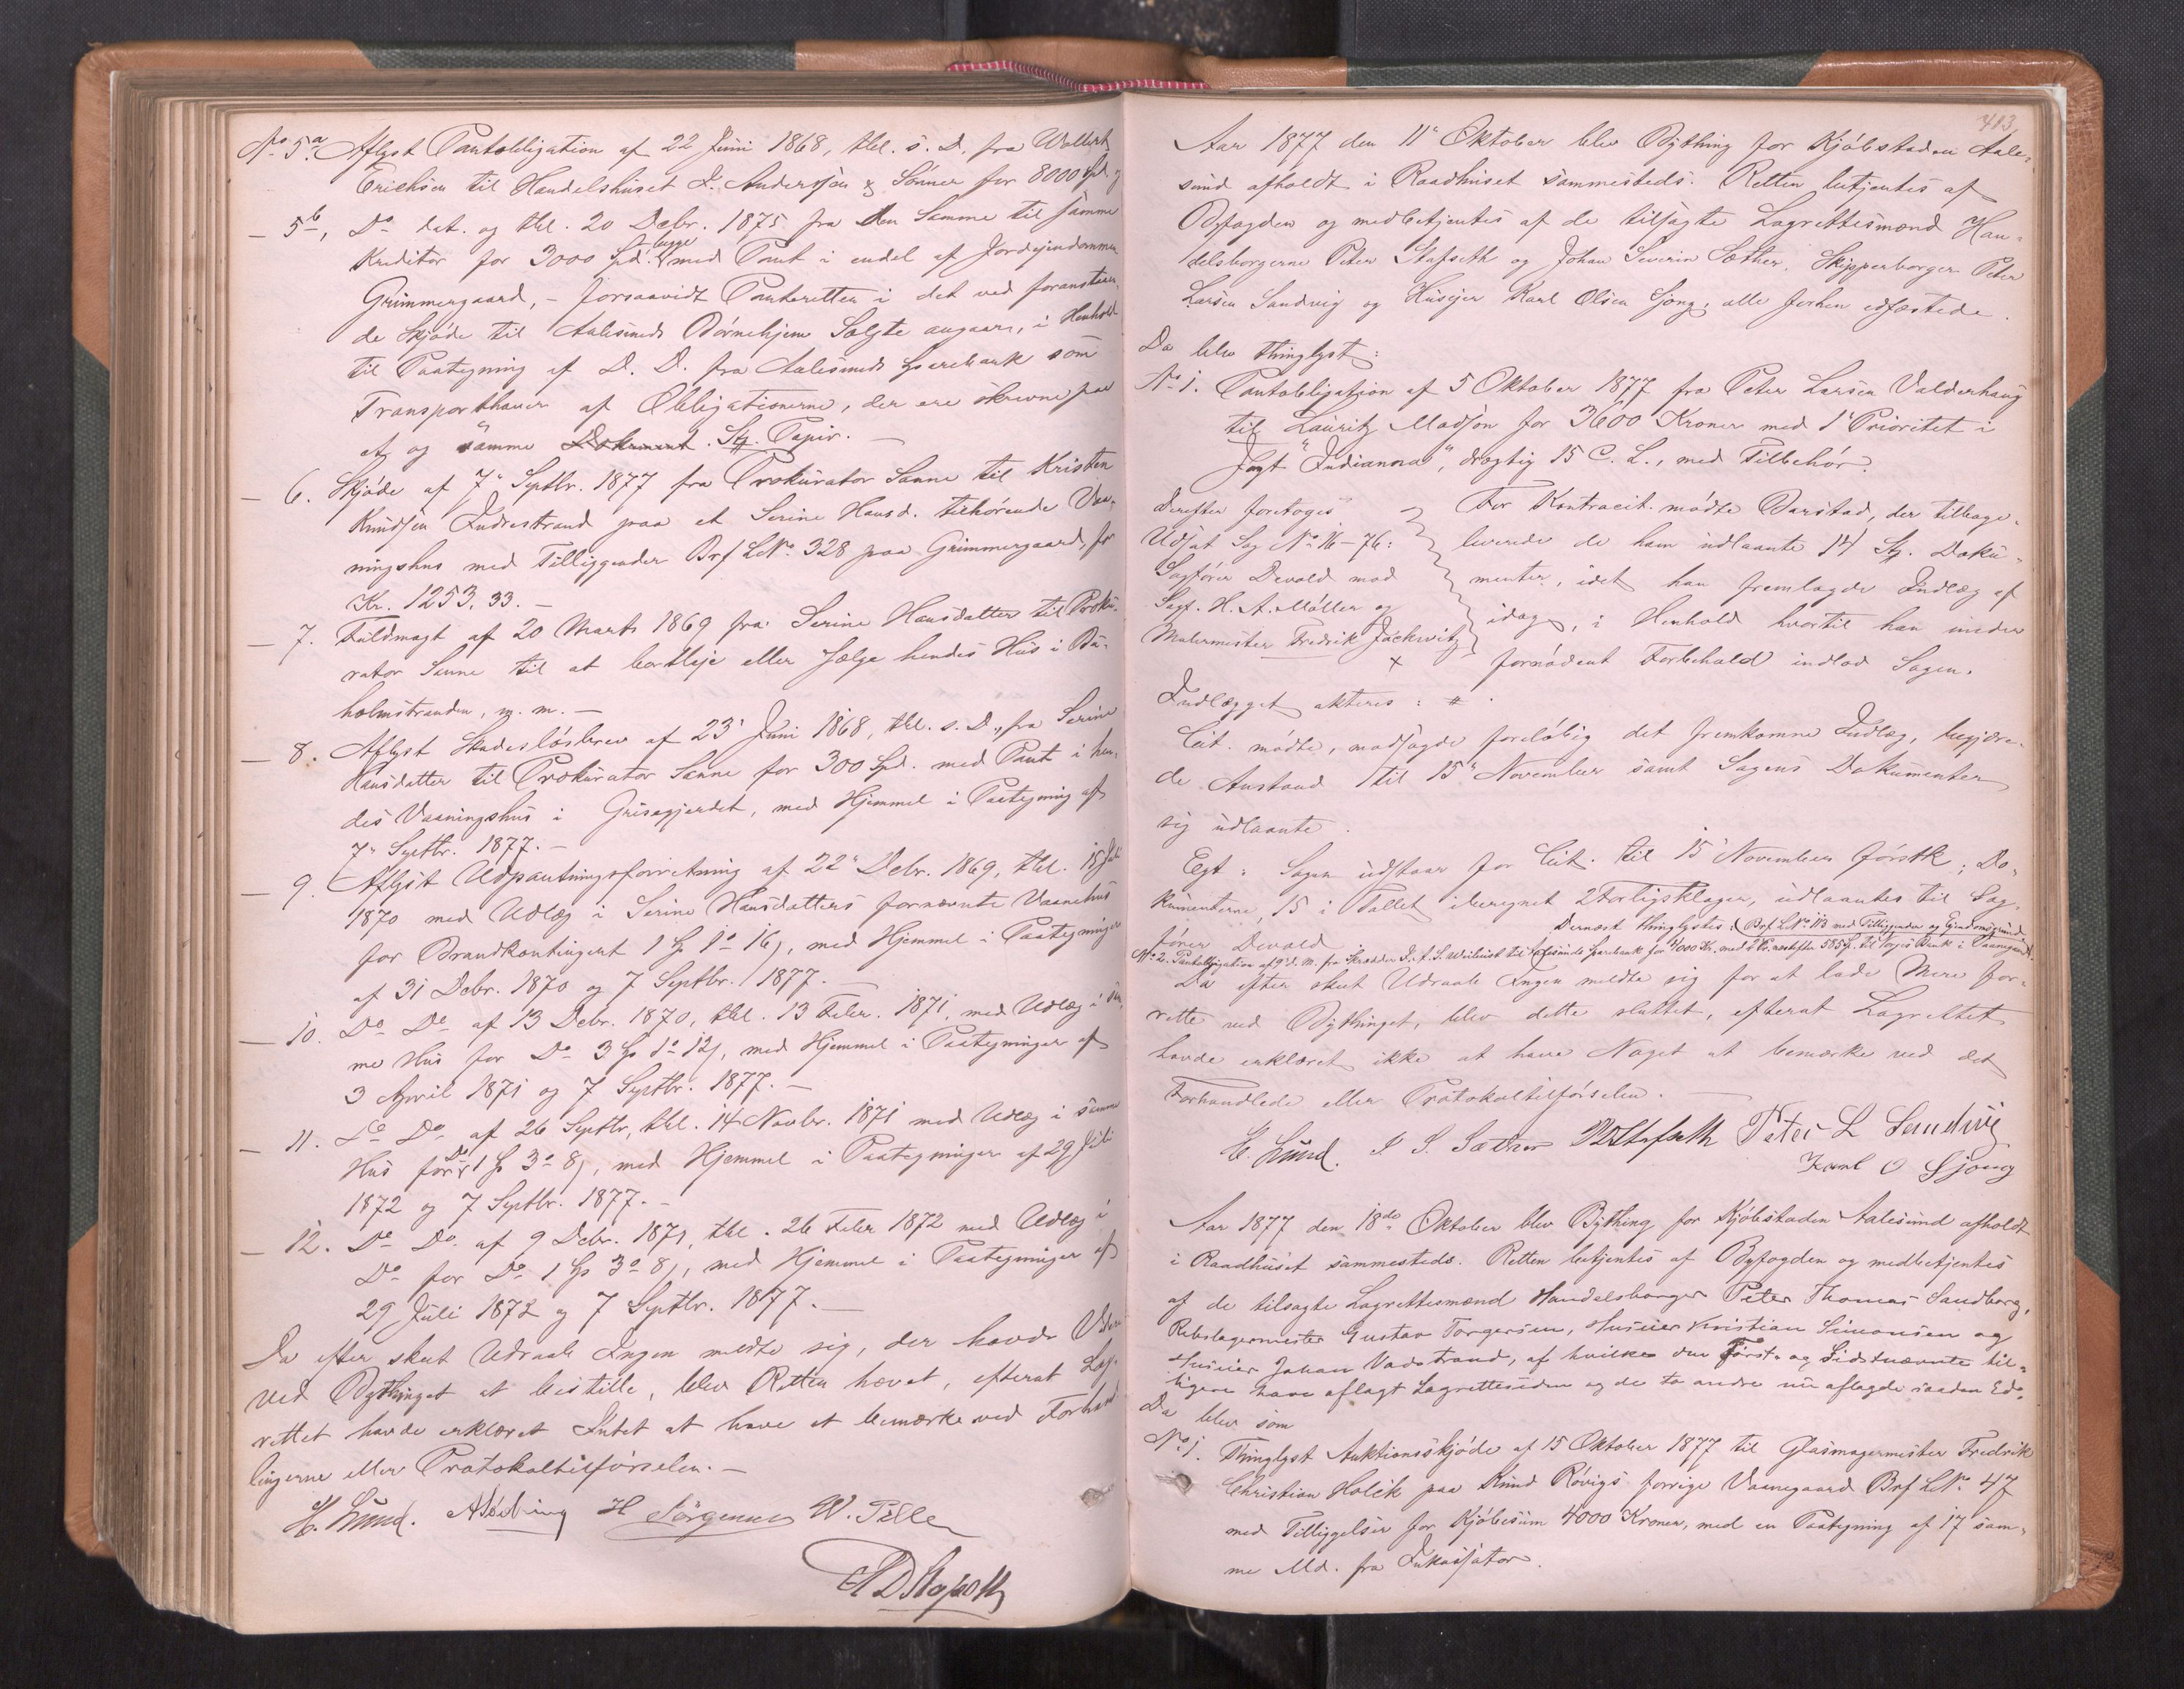 No 5a. Aflyst Pantobligation af 22 Juni 1868, thl. s. D. fra Wollert
Erichsen til Handelshuset I. Anderssen & Sønner for 8000 Spd. og
— 5b, Do dat. og thl. 20 Debr. 1875 fra den Samme til samme
Kreditor for 3000 Spd. begge med Pant i endel af Jordejendommen
Grimmergaard, – forsaavidt Panteretten i det ved foransteen-
de Skjøde til Aalesunds Børnehjem Solgte angaar, i Henhold
til Paategning af D. D. fra Aalesunds Sparebank som
Transporthaver af Obligationerne, der ere skrevne paa
et og samme Dokument. St. Papir. —
— 6. Skjøde af 7" Septbr. 1877 fra Prokurator Sanne til Kristen
Knudsen Indrestrand paa et Serine Hansd. tilhørende Vaa-
ningshus med Tilliggender Brf LNo. 328 paa Grimmergaard, for
Kr. 1253,33. —
— 7. Fuldmagt af 20 Marts 1869 fra Serine Hansdatter til Proku-
rator Sanne til at bortleje eller sælge hendes Hus i Bu-
holmstranden, m. m. —
— 8. Aflyst Skadesløsbrev af 23' Juni 1868, thl. s. D., fra Serine
Hansdatter til Prokurator Sanne for 300 Spd. med Pant i hen-
des Vaaningshus i Grisegjerdet, med Hjemmel i Paategning af
7" Septbr. 1877. —
— 9. Aflyst Udpantningsforretning af 22" Debr. 1869, thl. 15
1870 med Udlæg i Serine Hansdatters fornævnte Vaanehus
for Brandkontingent 1 Sp 1o 16s, med Hjemmel i Paategninger
af 31 Debr. 1870 og 7 Septbr. 1877. —
— 10. Do Do af 13 Debr. 1870, thl. 13 Febr. 1871, med Udlæg i sam-
me Hus for Do 3 Sp 1o 12s, med Hjemmel i Paategninger af
3 April 1871 og 7 Septbr. 1877. —
— 11. Do Do af 26 Septbr, thl. 14 Novbr. 1871 med Udlæg i samme
Hus for Do 1 Sp 3o 8s, med Hjemmel i Paategninger af 29 Juli
1872 og 7 Septbr. 1877. —
— 12. Do Do. af 9 Debr. 1871, thl. 26 Febr 1872 med Udlæg i
Do for Do 1 Sp 3o 8s, med Hjemmel i Paategninger af
29 Juli 1872 og 7 Septbr. 1877. —
Da efter skeet Udraab Ingen meldte sig, der havde Videre
ved Bythinget at bestille, blev Retten hævet, efterat Lag-
rettet havde erklæret Intet at have at bemærke ved Forhand-
lingerne eller Protokoltilførselen. —
H. Lund. H Jörgensen W. Tellen
413.
Aar 1877 den 11" Oktober blev Bything for Kjøbstaden Aale-
sund afholdt i Raadhuset sammesteds. Retten betjentes af
Byfogden og medbetjentes af de tilsagte Lagrettesmænd Han-
delsborgerne Peter Stafseth og Johan Severin Sæther, Skipperborger Peter
Larsen Sandvig og Husejer Karl Olsen Gjong, alle forhen edfæstede.
Da blev thinglyst:
No 1. Pantobligation af 5 Oktober 1877 fra Peter Larsen Valderhaug
til Lauritz Madsøn for 3600 Kroner med 1' Prioritet i
Jagt "Indianna", drægtig 15 C. L., med Tilbehør.
Derefter foretoges
Udsat Sag No 16–76:
Sagfører Devold mod
Sagf. H. A. Møller og
Malermester Fredrik Jackwitz
For Kontracit. mødte Barstad, der tilbage-
leverede de ham udlaante 14 St. Doku-
menter, idet han fremlagde Indlæg af
idag, i Henhold hvortil han under
fornødent Forbehold indlod Sagen.
Indlægget akteres: #.
Cit. mødte, modsagde foreløbig det fremkomne Indlæg, begjære-
de Anstand til 15" November samt Sagens Dokumenter
sig udlaante.
Egt: Sagen udstaar for Cit. til 15 November førstk; Do-
kumenterne, 15 i Tallet iberegnet 2 Forligsklager, udlaantes til Sag-
fører Devold
Dernæst thinglystes: Brf LNo 113 med Tilliggender og Ejendomsgrund
No 2. Pantobligation af 9' d. M. fra Skrædder til Aalesunds Sparebank for 4000 Kr. med
Da efter skeet Udraab Ingen meldte sig for at lade Mere for-
rette ved Bythinget, blev dette sluttet, efterat Lagrettet
havde erklæret ikke at have Noget at bemærke ved det
Forhandlede eller Protokoltilførselen.
H. Lund. J. S. Sæther PStafseth Peter L Sandvig
Karl O Gjong
Aar 1877 den 18de Oktober blev Bything for Kjøbstaden Aalesund afholdt
i Raadhuset sammesteds. Retten betjentes af Byfogden og medbetjentes
af de tilsagte Lagrettesmænd Handelsborger Peter Thomas Sandborg,
Rebslagermester Gustav Torgersen, Huseier Kristian Simonsen og
Huseier Johan Vadstrand, af hvilke den Først- og Sidstnævnte tid-
ligere have aflagt Lagretteseden og de to andre nu aflagde saadan Ed.
Da blev som
No 1. Thinglyst Auktionsskjøde af 15 Oktober 1877 til Glasmagermester Fredrik
Christian Holck paa Knud Røvigs forrige Vaanegaard Brf LNo 47
med Tilliggelser for Kjøbesum 4000 Kroner, med en Paategning af 17 sam-
me Md. fra Inkassator.